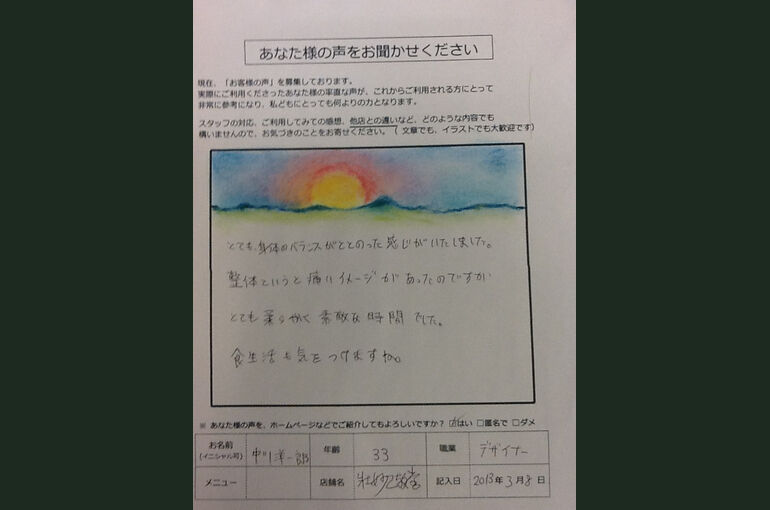 あなた様の声をお聞かせください
現在、「お客様の声」を募集しております。
実際にご利用くださったあなた様の率直な声が、これからご利用される方にとって
非常に参考になり、私どもにとっても何よりの力となります。
スタッフの対応、ご利用してみての感想、他店との違いなど、どのような内容でも
構いませんので、お気づきのことをお寄せください。（ 文章でも、イラストでも大歓迎です）
とても身体のバランスがととのった感じがいたしました。
整体というと痛いイメージがあったのですが
とても柔らかく素敵な時間でした。
食生活も気をつけますね。
※ あなた様の声を、ホームページなどでご紹介してもよろしいですか？ ☑はい □匿名で □ダメ
お名前 中川洋一郎 年齢 33 職業 デザイナー
(イニシャル可)
メニュー 店舗名 記入日 2013年3月8日